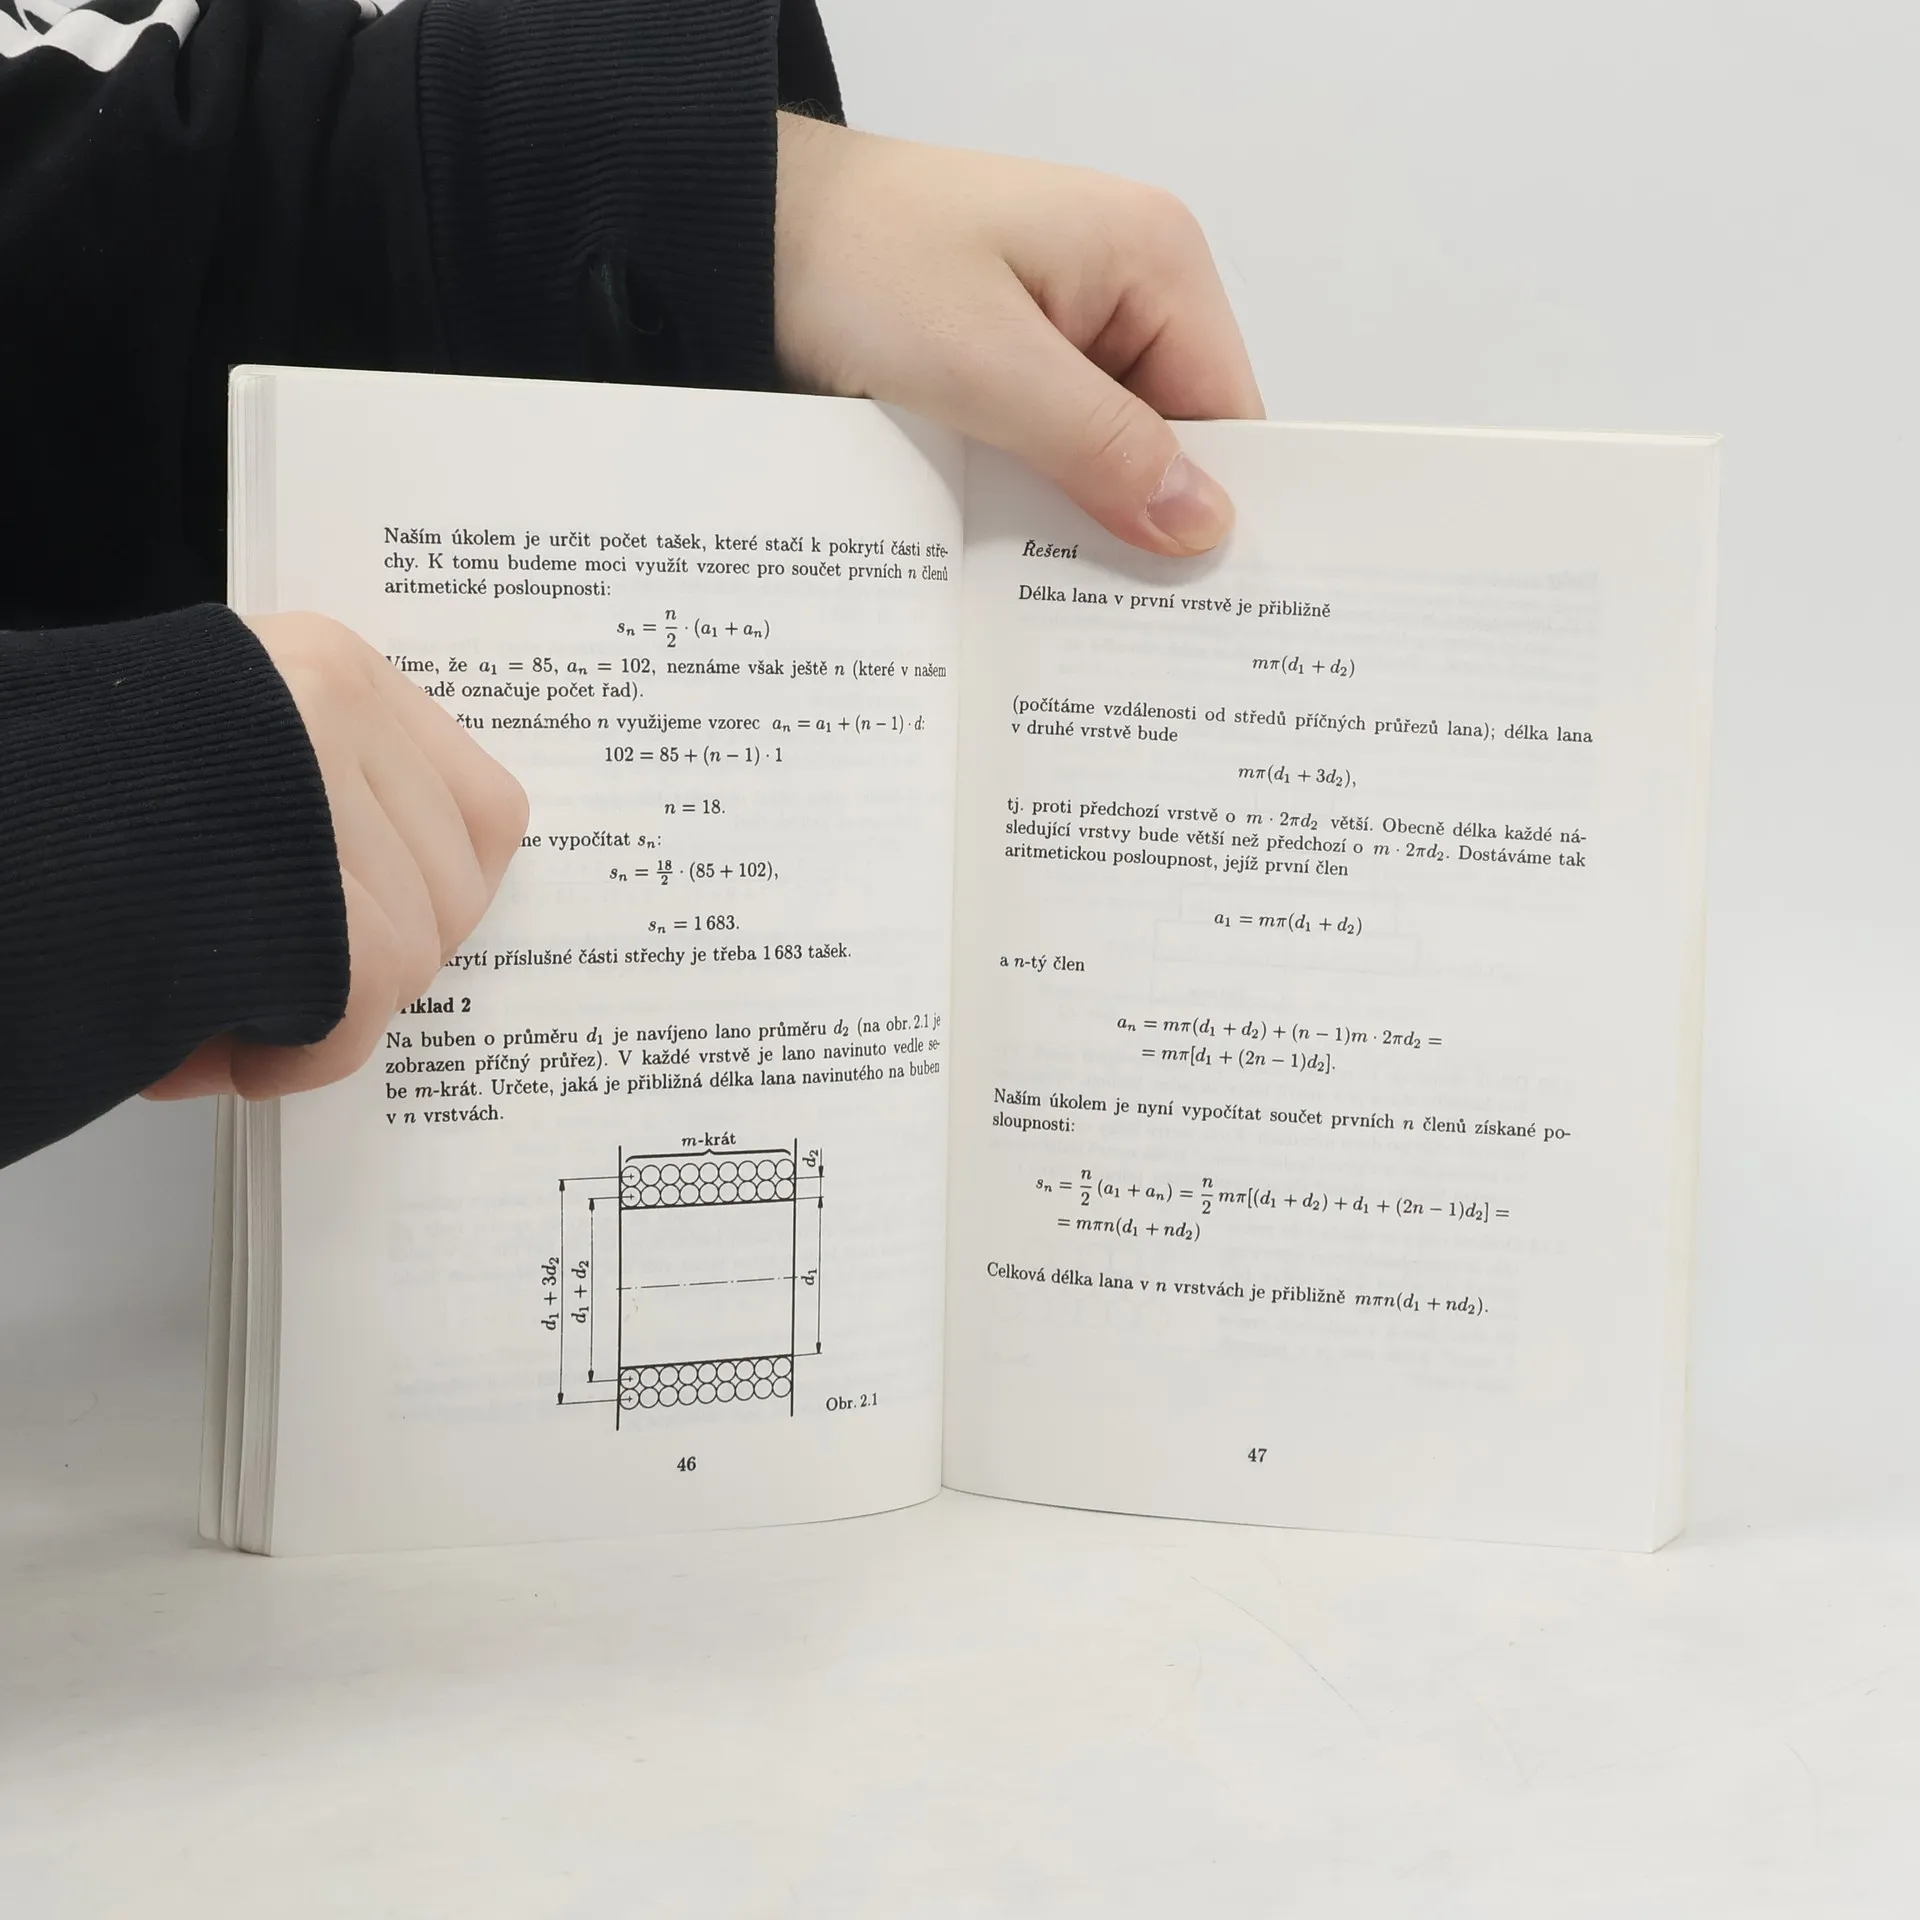 Naším úkolem je určit počet tašek, které stačí k pokrytí části stře-
chy. K tomu budeme moci využít vzorec pro součet prvních n členů
aritmetické posloupnosti:
sₙ = n/2 · (a₁ + aₙ)
Víme, že a₁ = 85, aₙ = 102, neznáme však ještě n (které v našem
označuje počet řad).
neznámého n využijeme vzorec aₙ = a₁ + (n − 1) · d:
102 = 85 + (n − 1) · 1
n = 18.
vypočítat sₙ:
sₙ = 18/2 · (85 + 102),
sₙ = 1 683.
příslušné části střechy je třeba 1 683 tašek.
2
Na buben o průměru d₁ je navíjeno lano průměru d₂ (na obr. 2.1 je
zobrazen příčný průřez). V každé vrstvě je lano navinuto vedle se-
be m-krát. Určete, jaká je přibližná délka lana navinutého na buben
v n vrstvách.
m-krát
d₂
d₁ + 3d₂
d₁ + d₂
d₁
Obr. 2.1
46
Řešení
Délka lana v první vrstvě je přibližně
mπ(d₁ + d₂)
(počítáme vzdálenosti od středů příčných průřezů lana); délka lana
v druhé vrstvě bude
mπ(d₁ + 3d₂),
tj. proti předchozí vrstvě o m · 2πd₂ větší. Obecně délka každé ná-
sledující vrstvy bude větší než předchozí o m · 2πd₂. Dostáváme tak
aritmetickou posloupnost, jejíž první člen
a₁ = mπ(d₁ + d₂)
a n-tý člen
aₙ = mπ(d₁ + d₂) + (n − 1)m · 2πd₂ =
= mπ[d₁ + (2n − 1)d₂].
Naším úkolem je nyní vypočítat součet prvních n členů získané po-
sloupnosti:
sₙ = n/2 (a₁ + aₙ) = n/2 mπ[(d₁ + d₂) + d₁ + (2n − 1)d₂] =
= mπn(d₁ + nd₂)
Celková délka lana v n vrstvách je přibližně mπn(d₁ + nd₂).
47